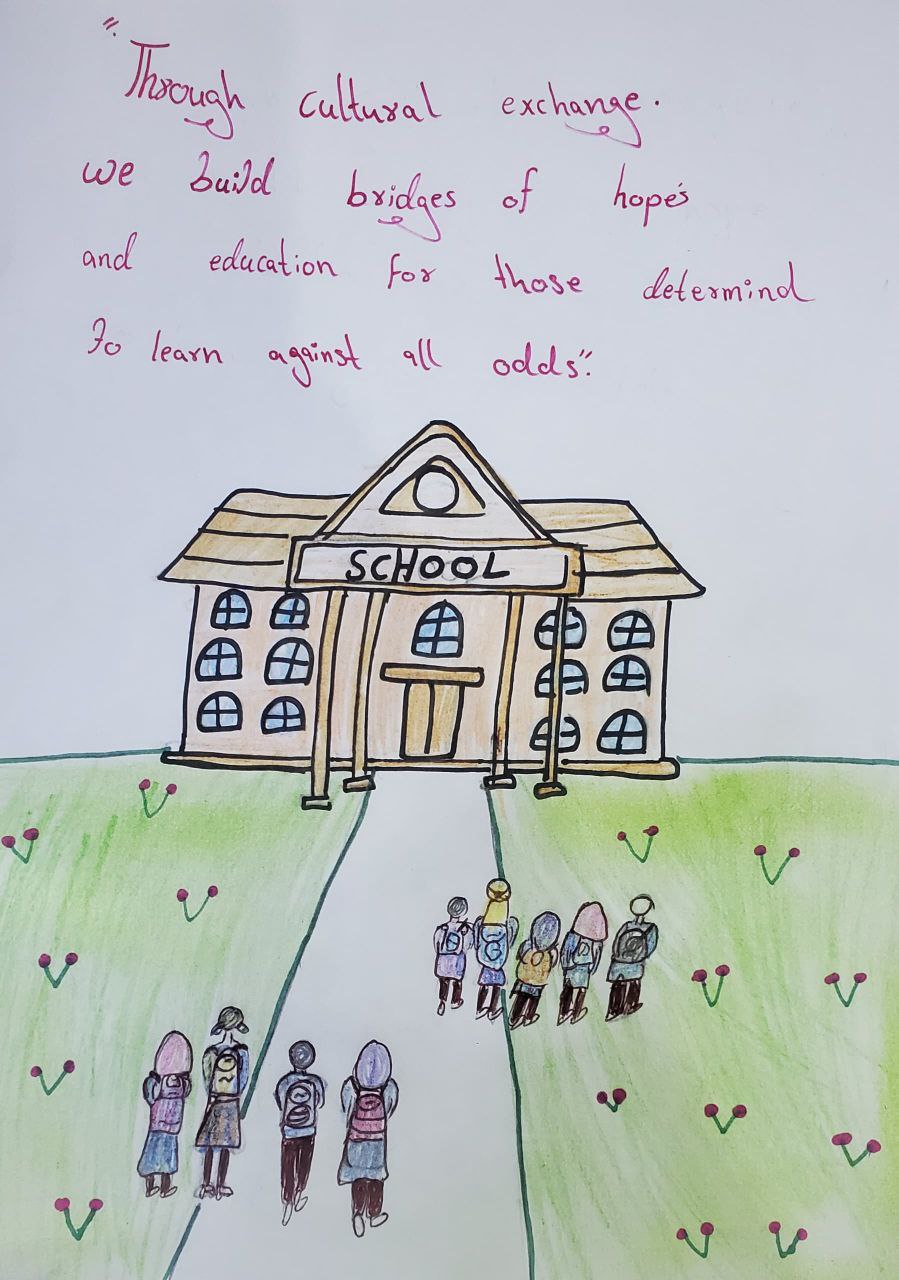 "Through cultural exchange.
we build bridges of hope's
and education for those determind
To learn against all odds".
SCHOOL